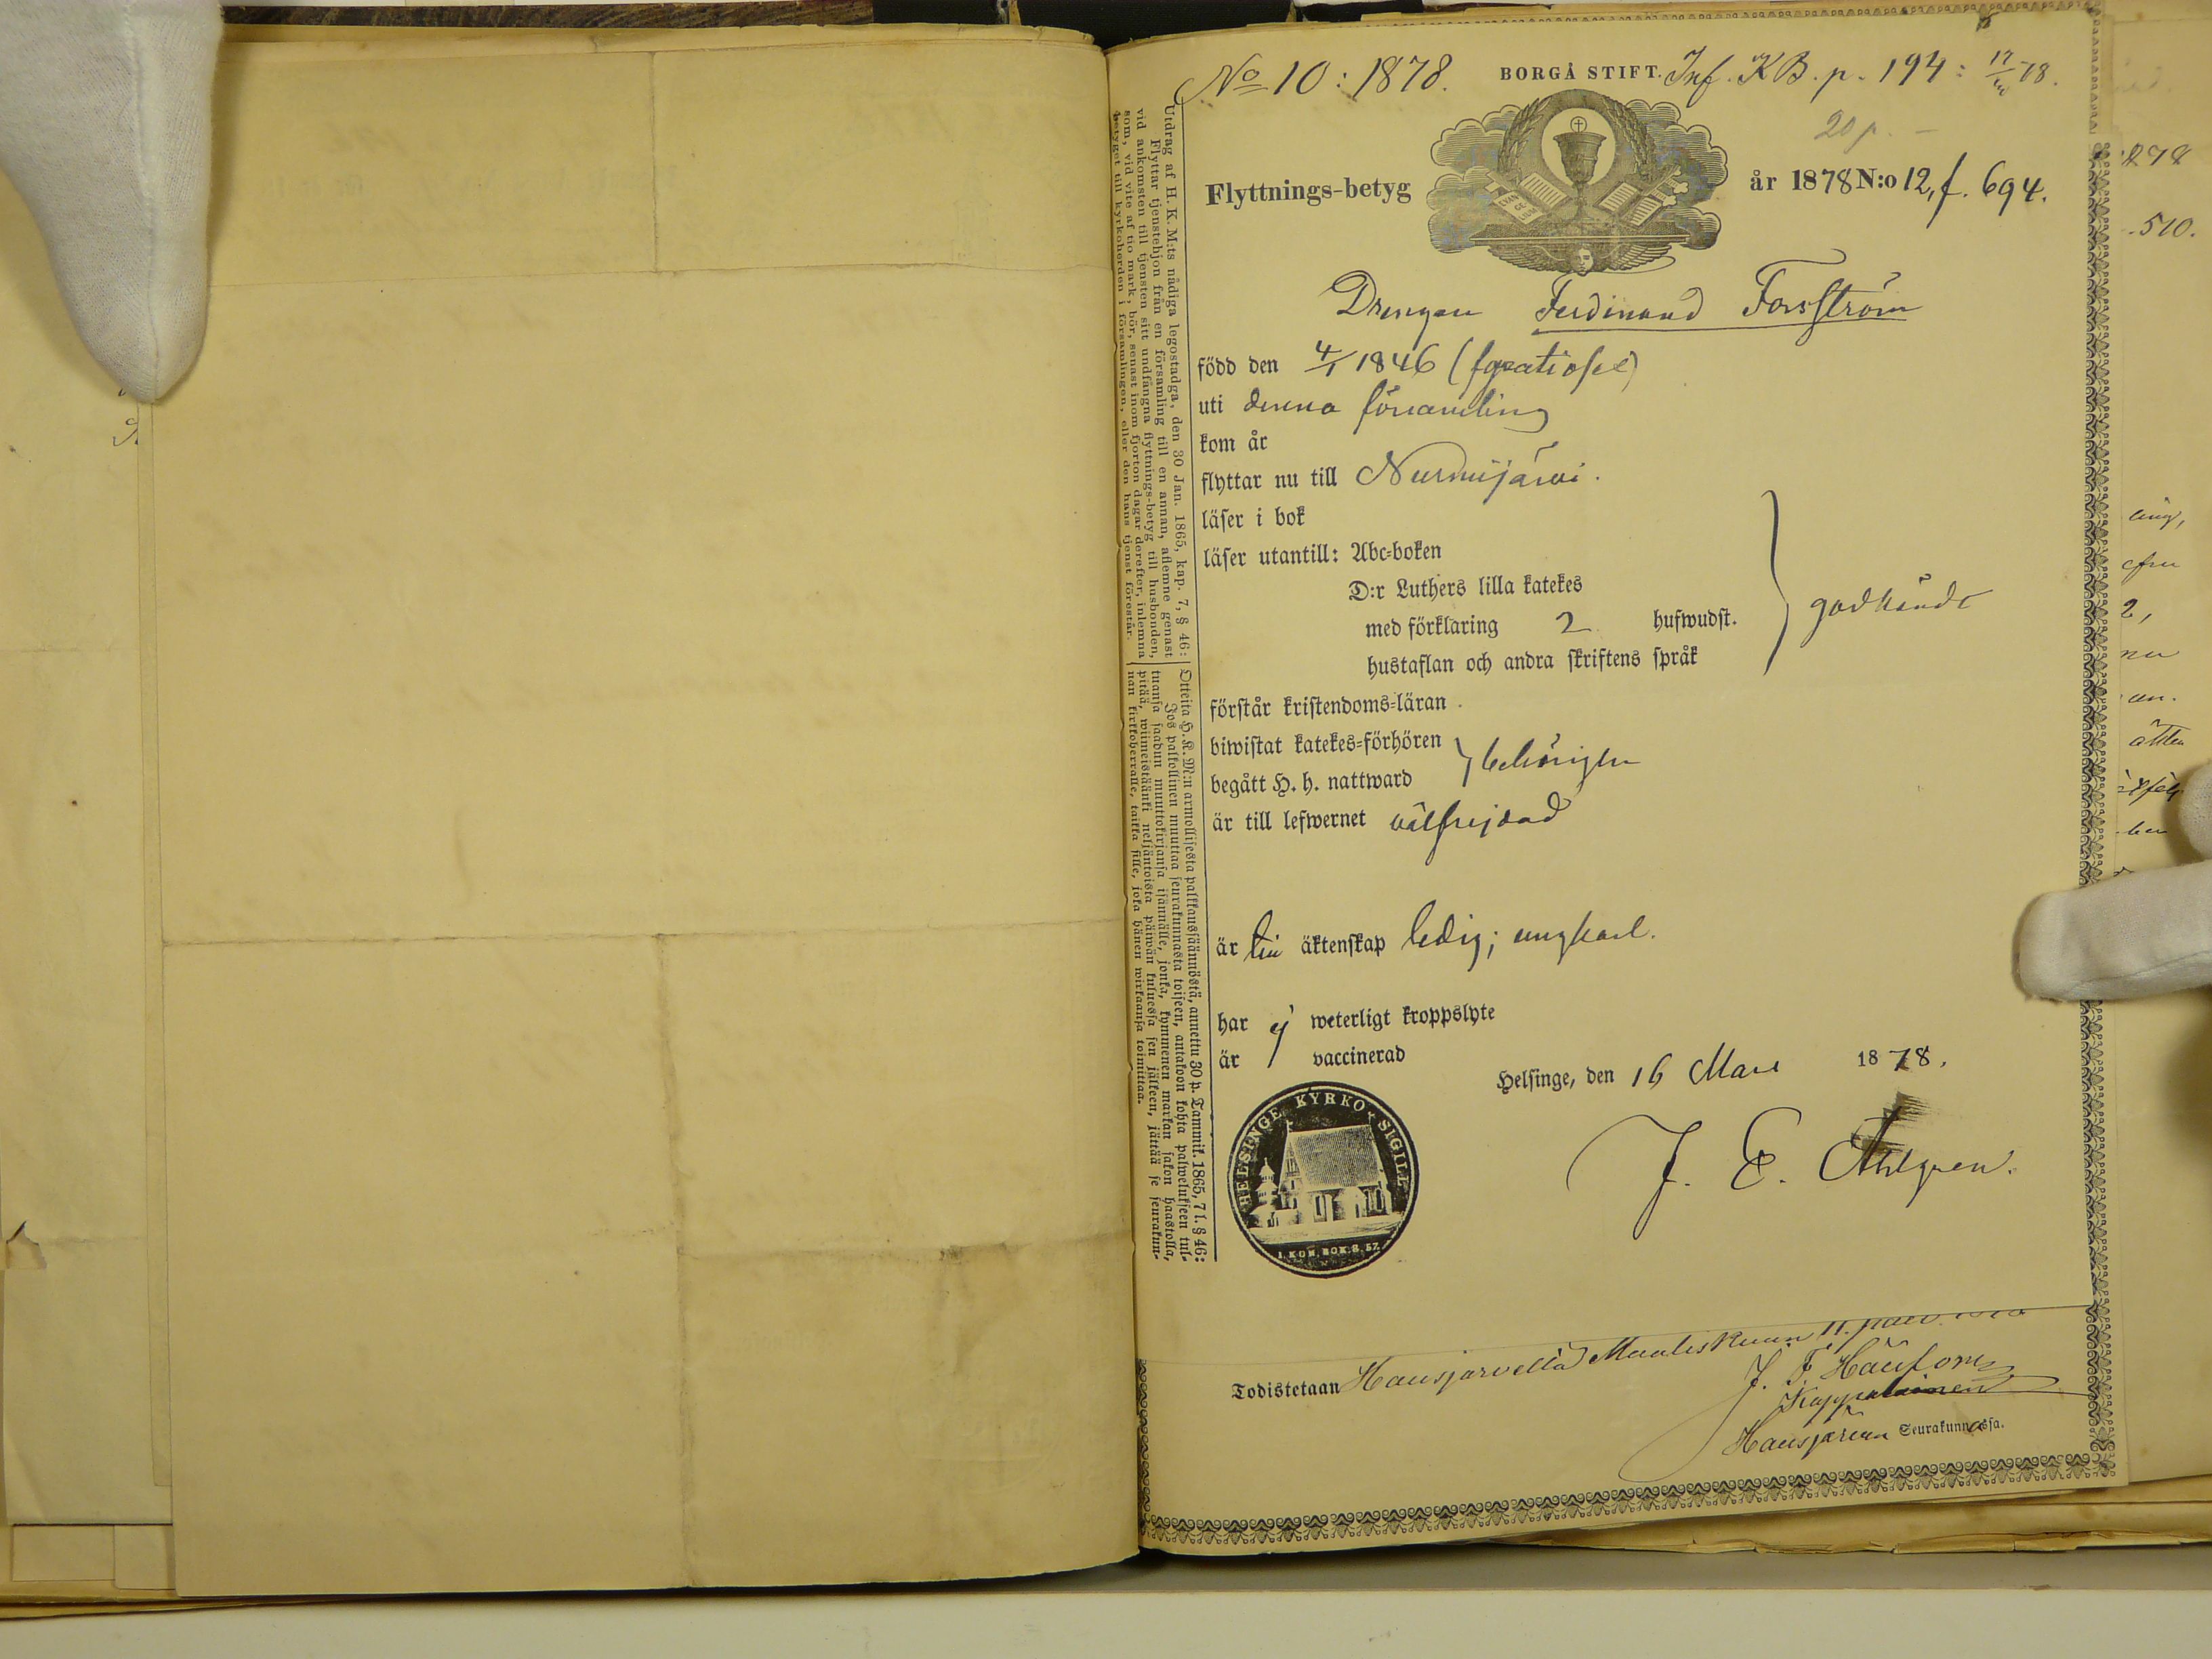 No 10: 1878.
BORGÅ STIFT.
Inf. KB. p. 194: 17/ 78.
20 p. –
Flyttnings-betyg
EVAN
GE
LIUM
år 1878 N:o 12, f. 694.
Drengen Ferdinand Forsström
född den 4/1 1846
uti denna församling
kom år
flyttar nu till Nurmijärvi.
läser i bok
läser utantill: Abc-boken
D:r Luthers lilla katekes
med förklaring 2 hufwudst.
hustaflan och andra skriftens språk
godkändt
förstår kristendoms-läran
biwistat katekes-förhören
begått H. h. nattward
behörigen
är till lefwernet välfrejdad
är till äktenskap ledig; ungkarl.
har ej weterligt kroppslyte
är vaccinerad
Helsinge, den 16 Mars 1878.
J. E. Ahlgren.
HELSINGE KYRKO SIGILL
1. KON. BOK. 8. 57.
Utdrag af H. K. M:ts nådiga legostadga, den 30 Jan. 1865, kap. 7, § 46:
Flyttar tjenstehjon från en församling till en annan, aflemne genast
vid ankomsten till tjensten sitt undfångna flyttnings-betyg till husbonden,
som, vid vite af tio mark, bör, senast inom fjorton dagar derefter, inlemna
betyget till kyrkoherden i församlingen, eller den hans tjenst förestår.
Otteita H. K. M:n armollisesta palkkaussäännöstä, annettu 30 p. Tammik. 1865, 7 l. § 46:
Jos palkollinen muuttaa seurakunnasta toiseen, antakoon kohta palwelukseen tul-
tuansa saadun muuttokirjansa isännälle, jonka, kymmenen markan sakon haastolla,
pitää, wiimeistäänki neljäntoista päiwän kuluessa sen jälkeen, jättää se seurakun-
nan kirkkoherralle, taikka sille, joka hänen wirkaansa toimittaa.
Todistetaan Hausjärvellä Maaliskuun 11. päiv.
Kappalainen
Hausjärven Seurakunnassa.
278
510.